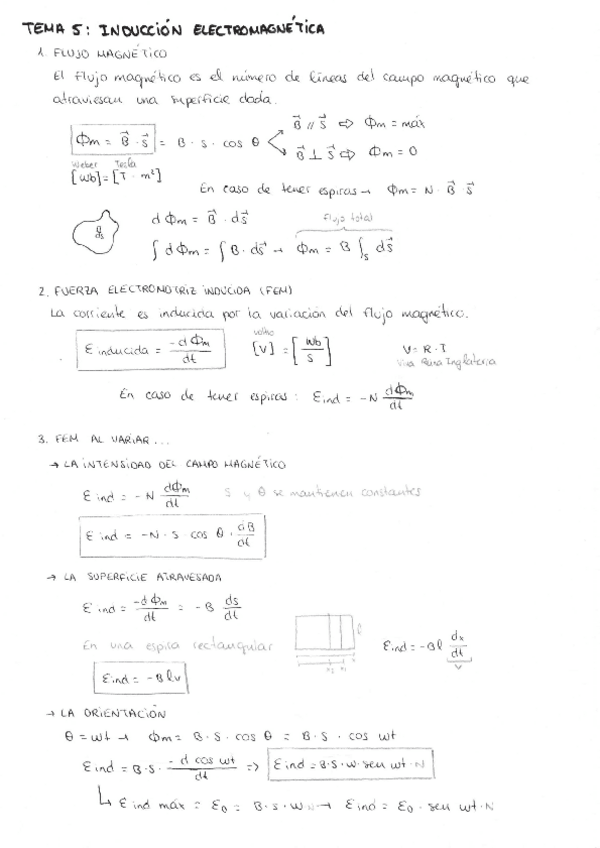 TEMA 5: INDUCCIÓN ELECTROMAGNÉTICA
1. FLUJO MAGNÉTICO
El flujo magnético es el número de líneas del campo magnético que
atraviesan una superficie dada.
Φm = B⃗ · S⃗ = B · S · cos θ
B⃗ // S⃗ ⇨ Φm = máx
B⃗ ⊥ S⃗ ⇨ Φm = 0
Weber Tesla
[Wb] = [T · m²]
En caso de tener espiras → Φm = N · B⃗ · S⃗
ds
dΦm = B⃗ · ds⃗
Flujo total
∫ dΦm = ∫ B · ds⃗ → Φm = B ∫s ds⃗
2. FUERZA ELECTROMOTRIZ INDUCIDA (FEM)
La corriente es inducida por la variación del flujo magnético.
voltio
ε inducida = -dΦm/dt [V] = [Wb/s] V = R · I
Viva Reina Inglaterra
En caso de tener espiras: εind = -N dΦm/dt
3. FEM AL VARIAR...
→ LA INTENSIDAD DEL CAMPO MAGNÉTICO
ε ind = -N dΦm/dt S y θ se mantienen constantes
ε ind = -N · S cos θ · dB/dt
→ LA SUPERFICIE ATRAVESADA
ε ind = -dΦm/dt = -B ds/dt
En una espira rectangular εind = -Bl dx/dt
v
l
εind = -Blv
→ LA ORIENTACIÓN
θ = wt → Φm = B · S · cos θ = B · S · cos wt
εind = B · S · -d cos wt/dt => εind = B · S · w · sen wt · N
ε ind máx = ε0 = B · S · w N → εind = ε0 · sen wt · N